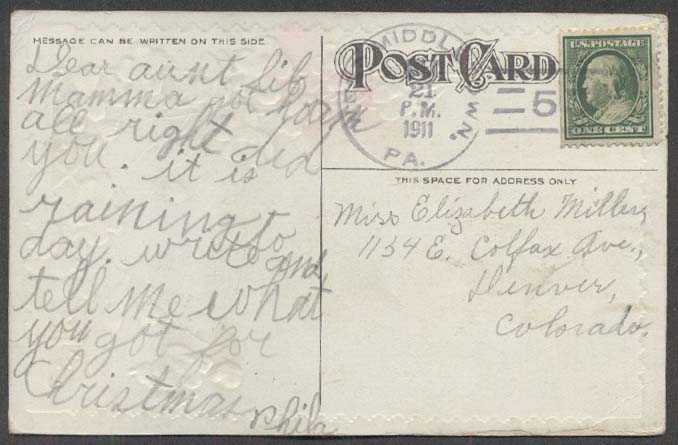 MESSAGE CAN BE WRITTEN ON THIS SIDE
Dear aunt lib
Mamma got hom
all right did
you. it is
raining to
day. write and
tell me what
you got for
Christmas
Phil
POST CARD
NEW MIDDLETOWN.
21
P.M.
1911
PA.
5
U.S. POSTAGE
ONE CENT
THIS SPACE FOR ADDRESS ONLY
Miss Elizabeth Miller,
1154 E. Colfax Ave.,
Denver,
Colorado.